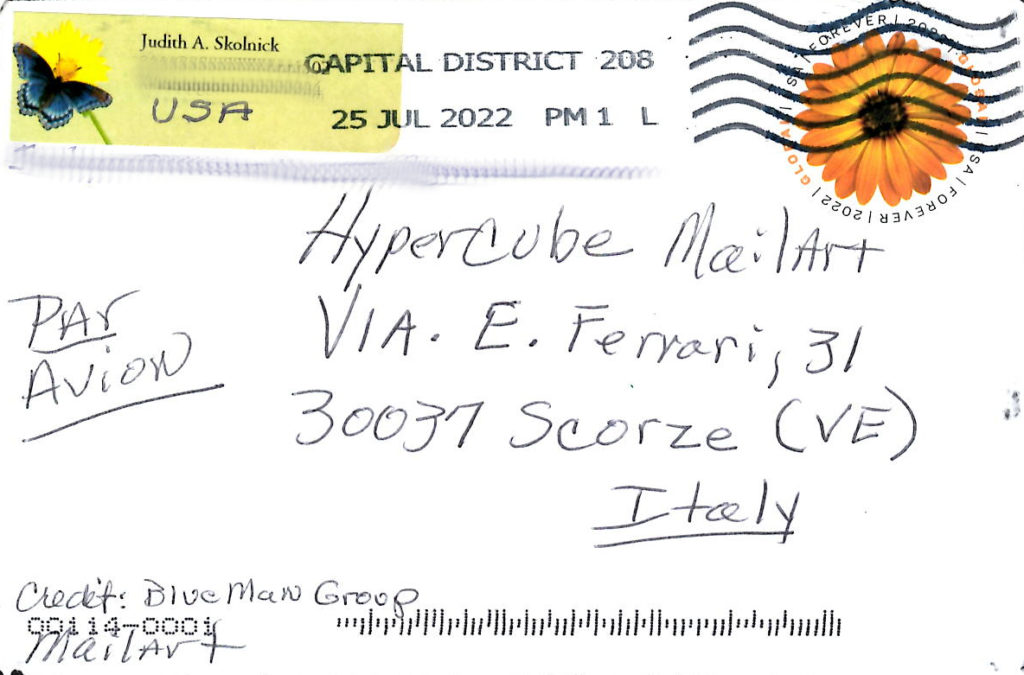 Judith A. Skolnick
USA
CAPITAL DISTRICT 208
25 JUL 2022 PM 1 L
GLOBAL | USA | FOREVER | 2022 | GLOBAL | USA | FOREVER | 2022 |
HyperCube MailArt
VIA. E. Ferrari, 31
30037 Scorze (VE)
Italy
PAr
Avion
Credit: Blue Man Group
00114-0001
MailArt